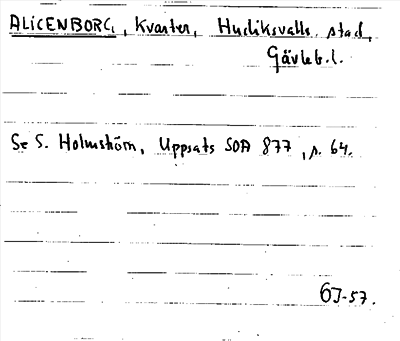 ALICENBORG, kvarter, Hudiksvalls stad,
Gävleb. l.
Se S. Holmström, Uppsats SOA 877, s. 64.
GJ-57.